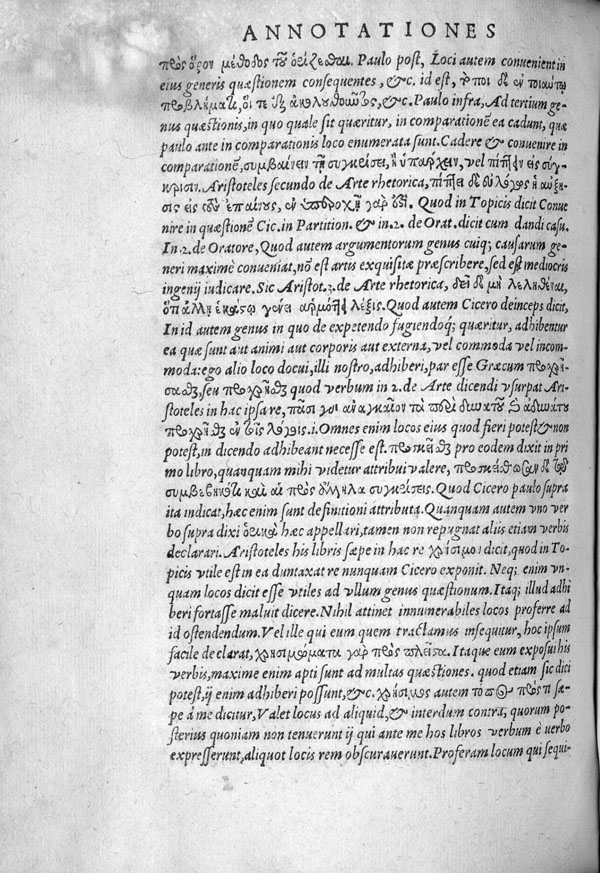 ANNOTATIONES
πρὸς ὅρον μέθοδος τοῦ ὁρίζεσθαι. Paulo post, Loci autem convenient in
eius generis quæstionem consequentes, &c. id est, τόποι δὲ ἐν τοιούτῳ
προβλήματι, οἵ τε ἐξ ἀκολουθούσης, &c. Paulo infra, Ad tertium ge-
nus quæstionis, in quo quale sit quæritur, in comparationē ea cadunt, quæ
paulo ante in comparationis loco enumerata sunt. Cadere & convenire in
comparationē, συμβαίνειν τῇ συγκρίσει, ἢ ὑπάρχειν, vel πίπτειν εἰς σύγ-
κρισιν. Aristoteles secundo de Arte rhetorica, πίπτει δὲ εὐλόγως ἡ αὔξη-
σις εἰς τοὺς ἐπαίνους, ἐν ὑπεροχῇ γάρ ἐστι. Quod in Topicis dicit Conve
nire in quæstionē Cic. in Partition. & in 2. de Orat. dicit cum dandi casu.
In 2. de Oratore, Quod autem argumentorum genus cuiq; causarum ge-
neri maximè conveniat, nō est artis exquisitæ præscribere, sed est mediocris
ingenij iudicare. Sic Aristot. 3. de Arte rhetorica, δεῖ δὲ μὴ λεληθέναι,
ὅτι ἄλλη ἑκάστῳ γένει ἁρμόττει λέξις. Quod autem Cicero deinceps dicit,
In id autem genus in quo de expetendo fugiendoq; quæritur, adhibentur
ea quæ sunt aut animi aut corporis aut externa, vel commoda vel incom-
moda: ego alio loco docui, illi nostro, adhiberi, par esse Græcum προχρῆ-
σθαι, seu προσχρῆσθαι quod verbum in 2. de Arte dicendi vsurpat Ari-
stoteles in hac ipsa re, πᾶσι γὰρ ἀναγκαῖον τὰ περὶ δυνατοῦ καὶ ἀδυνάτου
προσχρῆσθαι ἐν τοῖς λόγοις. i. Omnes enim locos eius quod fieri potest & non
potest, in dicendo adhibeant necesse est. προσκεῖσθαι pro eodem dixit in pri
mo libro, quanquam mihi videtur attribui valere, προσκείσθωσαν δὲ τῷ
συμβεβηκότι καὶ αἱ πρὸς ἄλληλα συγκρίσεις. Quod Cicero paulo supra
ita indicat, hæc enim sunt definitioni attributa. Quanquam autem vno ver
bo supra dixi ὁρικὰ hæc appellari, tamen non repugnat aliis etiam verbis
declarari. Aristoteles his libris sæpe in hac re χρήσιμοι dicit, quod in To-
picis vtile est in ea duntaxat re nunquam Cicero exponit. Neq; enim vn-
quam locos dicit esse vtiles ad vllum genus quæstionum. Itaq; illud adhi
beri fortasse maluit dicere. Nihil attinet innumerabiles locos proferre ad
id ostendendum. Vel ille qui eum quem tractamus insequitur, hoc ipsum
facile declarat, χρησιμώματα γὰρ πρὸς πλεῖστα. Itaque eum exposui his
verbis, maxime enim apti sunt ad multas quæstiones. quod etiam sic dici
potest, ij enim adhiberi possunt, &c. χρήσιμος autem τόπος πρός τι sæ-
pe à me dicitur, Valet locus ad aliquid, & interdum contra, quorum po-
sterius quoniam non tenuerunt ij qui ante me hos libros verbum è verbo
expresserunt, aliquot locis rem obscuraverunt. Proferam locum qui sequi-